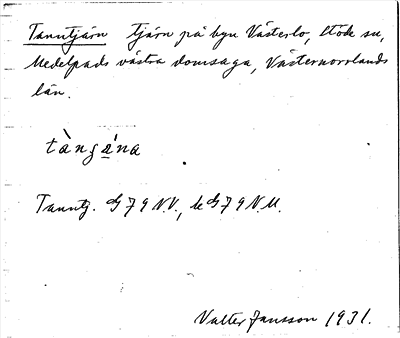 Tanntjärn tjärn på byn Västerlo, Stöde sn,
Medelpads västra domsaga, Västernorrlands
län.
tàngá̱na
Tanntj. G 79 N.V., k G 79 N.U.
Valter Jansson 1931.